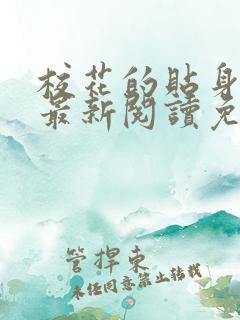 校花的貼身
最新閱讀免
管捍東
未经同意禁止转载